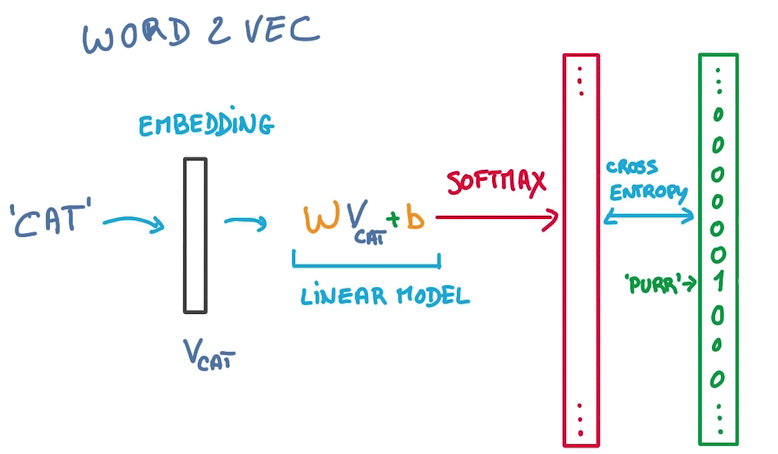 WORD 2 VEC
EMBEDDiNG
'CAT'
V_CAT
W V_CAT + b
LiNEAR MODEL
SOFTMAX
⋮
⋮
CROSS
ENTROPY
⋮
0
0
0
0
0
0
'PURR'→ 1
0
0
0
⋮